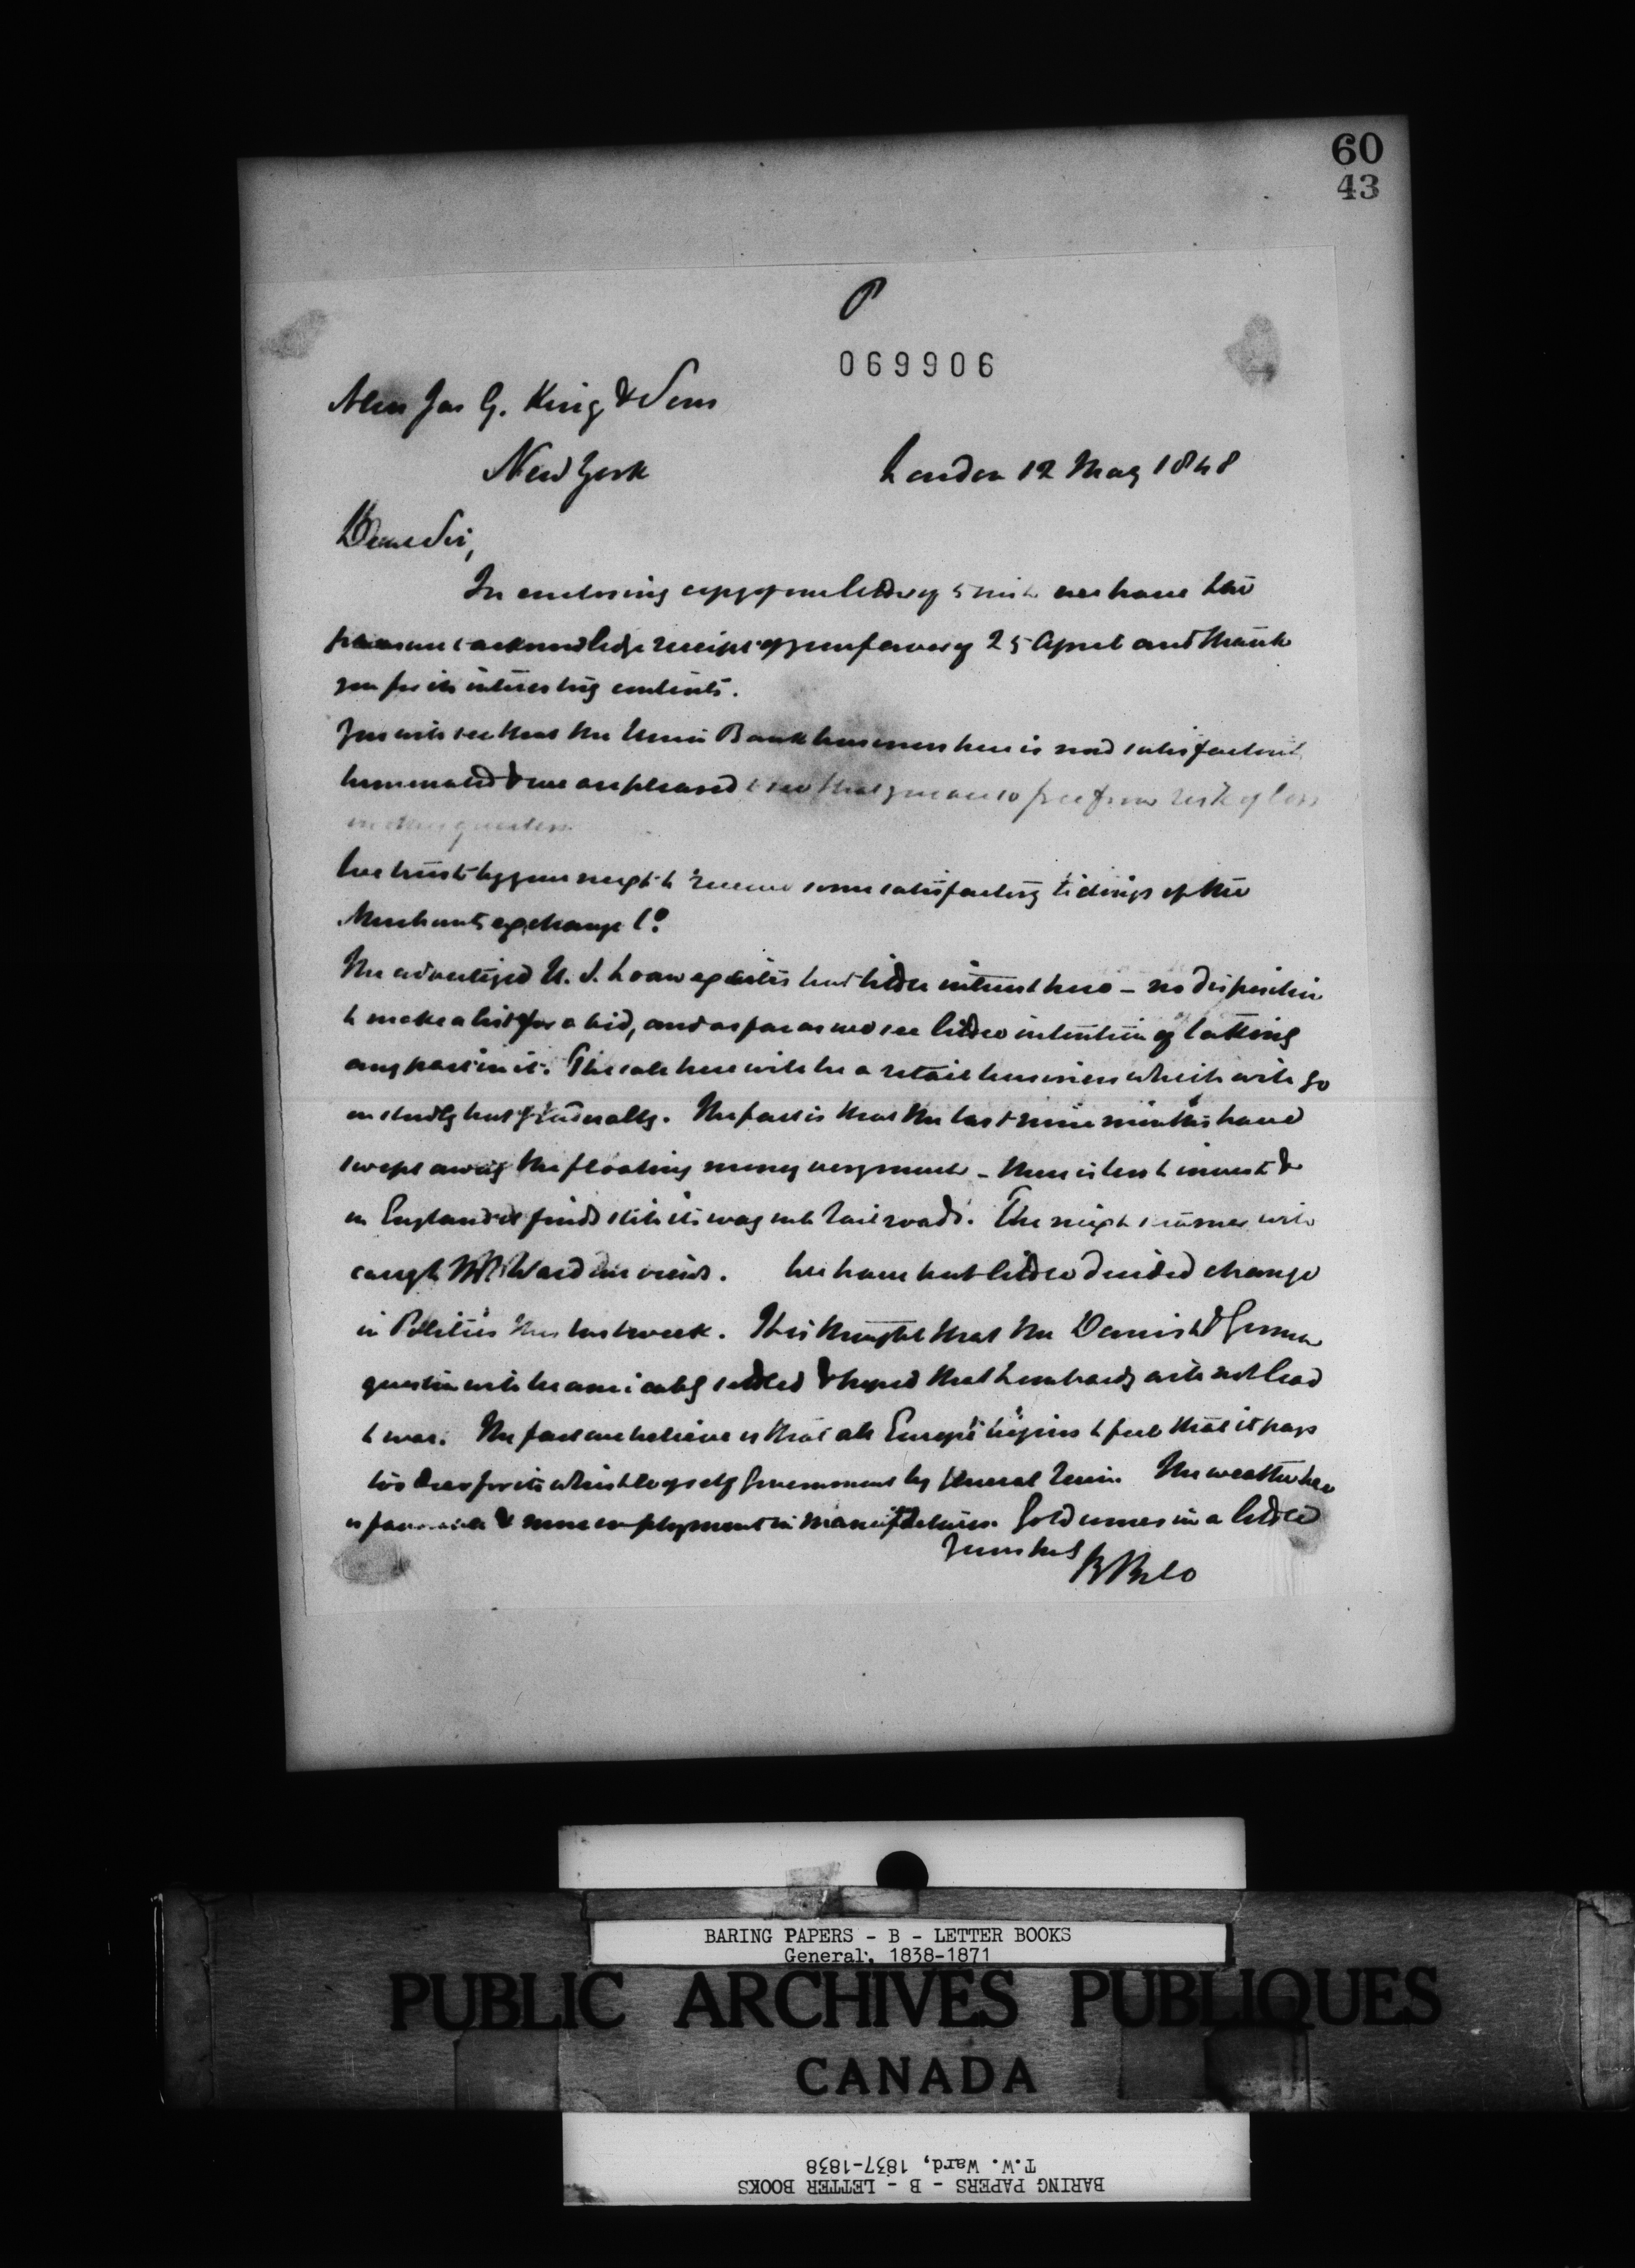 60
43
P
069906
Messrs Jas G. King & Sons
New York
London 12 May 1848
Dear Sir,
In enclosing copy of our letter of 5 inst we have the
pleasure to acknowledge receipt of your favor of 25 April and thank
you for its interesting contents.
You will see that the Union Bank business here is now satisfactorily
terminated & we are pleased to see that you are so free from risk of loss
in the question
We trust by your next to receive some satisfactory tidings of the
Merchants exchange Co.
The advertized U.S. Loan excites but little interest here – no disposition
to make a list for a bid, and as far as we see little intention of taking
any part in it. The sale here will be a retail business which will go
on steadily but gradually. The fact is that the last nine months have
swept away the floating money very much – there is less to invest &
in England it finds still its way into railroads. The next steamer will
carry to Mr Ward our views. We have but little decided change
in Politics this last week. It is thought that the Danish & German
question will be amicably settled & hoped that Lombardy will not lead
to war. The fact we believe is that all Europe begins to feel that it pays
too dear for its whistle of self government by general ruin. The weather here
is favorable & more employment in manufactures. Gold comes in a little
Yours truly
BBCo
BARING PAPERS - B - LETTER BOOKS
General, 1838-1871
PUBLIC ARCHIVES PUBLIQUES
CANADA
BARING PAPERS - B - LETTER BOOKS
T.W. Ward, 1837-1838